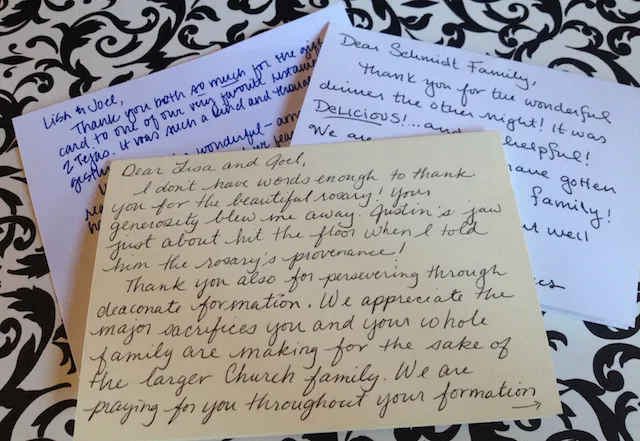 Lisa & Joel,
Thank you both so much for the gift
card to one of our very favorite restaurants
2 Tejas. It was such a kind and
wonderful -
Dear Schmidt Family,
Thank you for the wonderful
dinner the other night! It was
DELICIOUS!...and helpful!
We are
have gotten
family!
well
Dear Lisa and Joel,
I don't have words enough to thank
you for the beautiful rosary! Your
generosity blew me away. Justin's jaw
just about hit the floor when I told
him the rosary's provenance!
Thank you also for persevering through
deaconate formation. We appreciate the
major sacrifices you and your whole
family are making for the sake of
the larger Church family. We are
praying for you throughout your formation →